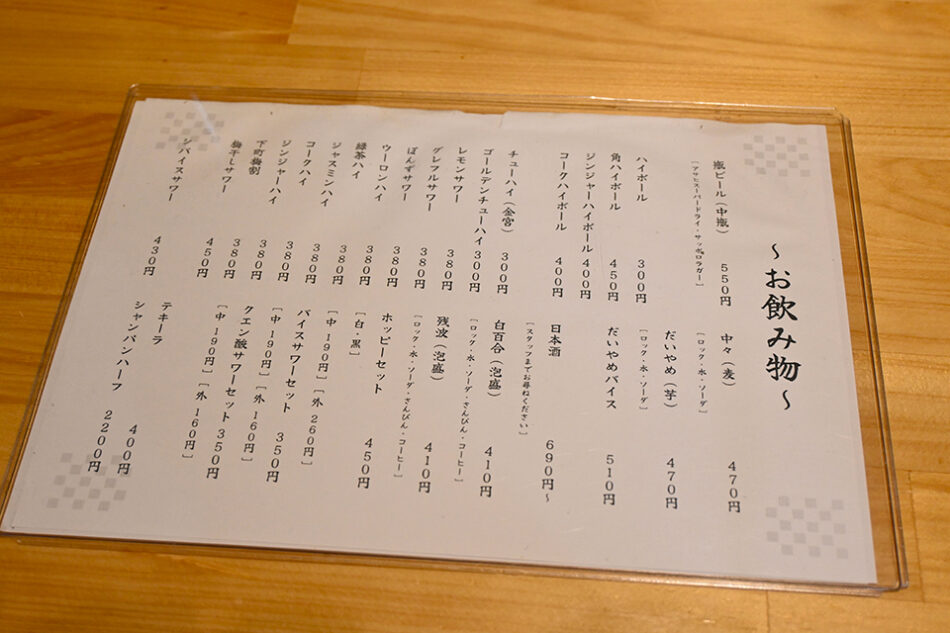 ～お飲み物～
瓶ビール（中瓶） 550円
［アサヒスーパードライ・サッポロラガー］
ハイボール 300円
角ハイボール 450円
ジンジャーハイボール 400円
コークハイボール 400円
チューハイ（金宮） 300円
ゴールデンチューハイ 300円
レモンサワー 380円
グレフルサワー 380円
ぽんずサワー 380円
ウーロンハイ 380円
緑茶ハイ 380円
ジャスミンハイ 380円
コークハイ 380円
ジンジャーハイ 380円
下町梅割 380円
梅干しサワー 450円
バイスサワー 430円
中々（麦） 470円
［ロック・水・ソーダ］
だいやめ（芋） 470円
［ロック・水・ソーダ］
だいやめバイス 510円
日本酒 690円～
［スタッフまでお尋ねください］
白百合（泡盛） 410円
［ロック・水・ソーダ・さんぴん・コーヒー］
残波（泡盛） 410円
［ロック・水・ソーダ・さんぴん・コーヒー］
ホッピーセット 450円
［白・黒］
［中 190円］［外 260円］
バイスサワーセット 350円
［中 190円］［外 160円］
クエン酸サワーセット 350円
［中 190円］［外 160円］
テキーラ 400円
シャンパンハーフ 2200円